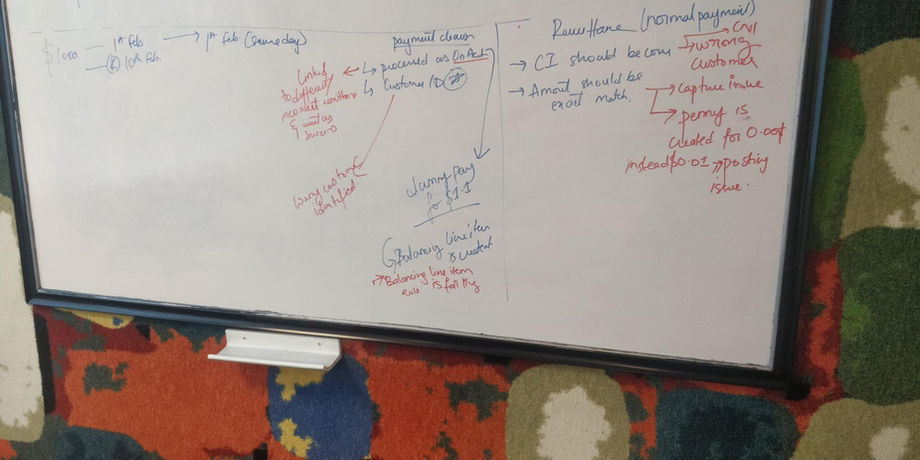 $1000 — 1st Feb. → 1st Feb. (same day)
— 10th Feb.
payment
↳ processed as On Act
↳ Customer ID
Linked
to different
incorrect remittance
& went as
success
Wrong customer
identified.
Dummy pay
for $1.1
Balancing line item
is created
→ Balancing line item
rule is failing.
Remittance (normal payment)
→ CI should be → wrong
customer
→ Amount should be
exact match.
→ capture issue
→ penny is
created for 0.001
instead $0.01 → posting
issue.